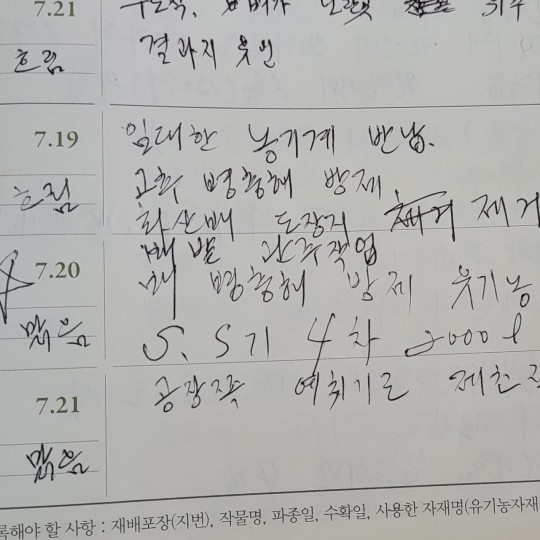 7.21
흐림 결과지 유인
7.19 임대한 농기계 반납.
흐림 고추 병충해 방제
화산배 도장지 제거
배밭 관주작업
7.20 배 병충해 방제 유기농
맑음 S.S기 4차 2000l
7.21 공장쪽 예취기로 제초
맑음
록해야 할 사항 : 재배포장(지번), 작물명, 파종일, 수확일, 사용한 자재명(유기농자재